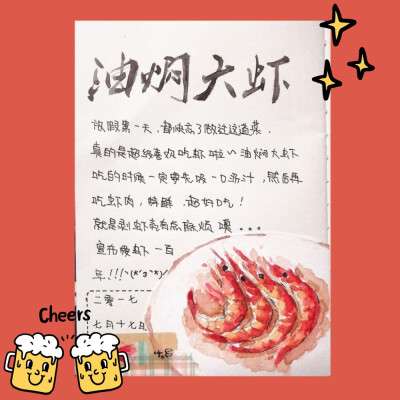 油焖大虾
放假第一天,都快忘了做过这道菜.
真的是超级喜欢吃虾啦~油焖大虾
吃的时候一定要先吸一口汤汁,然后再
吃虾肉,特鲜.超好吃!
就是剥虾壳有点麻烦 噢...
宣布 虾一百
年!!!
二零一七
七月十七
Cheers